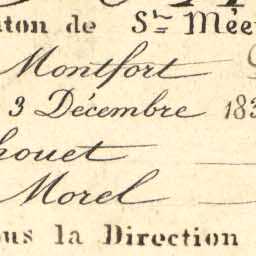 ton de St Méen
Montfort
3 Décembre 183
houet
Morel
ous la Direction